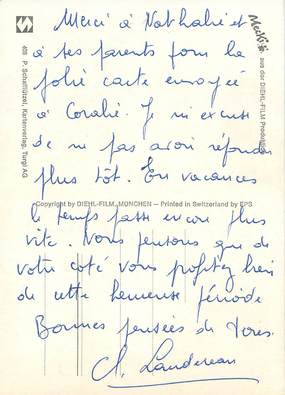 Merci à Nathalie et
à ses parents pour la
jolie carte envoyée
à Coralie. Je m'excuse
de ne pas avoir répondu
plus tôt. En vacances
le temps passe encore plus
vite. Nous pensons que de
votre coté vous profitez bien
de cette heureuse période
Bonnes pensées de tous.
Copyright by DIEHL-FILM, MÜNCHEN – Printed in Switzerland by EPS
409 P. Schafflützel, Kartenverlag, Turgi AG
Mecki's aus der DIEHL-FILM Produktion